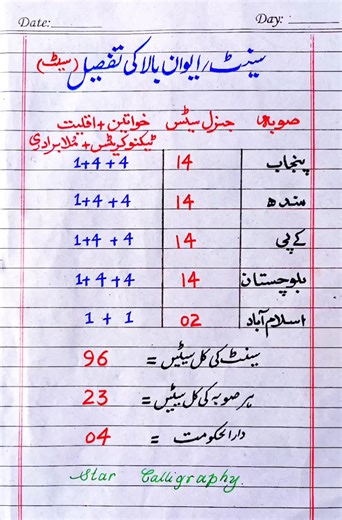 Date: Day:
سینٹ / ایوان بالا کی تفصیل (سیٹ)
صوبہ جنرل سیٹس خواتین + اقلیت
ٹیکنوکریٹس + علما برادری
پنجاب 14 1+4+4
سندھ 14 1+4+4
کے پی 14 1+4+4
بلوچستان 14 1+4+4
اسلام آباد 02 1 + 1
سینٹ کی کل سیٹیں = 96
ہر صوبہ کی کل سیٹیں = 23
دارالحکومت = 04
Star Calligraphy.